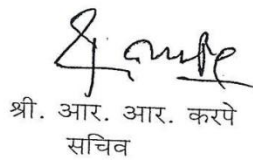 श्री. आर. आर. करपे
सचिव